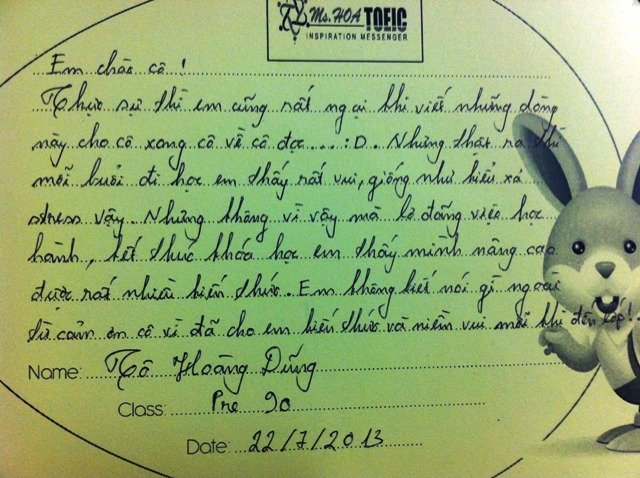 Ms. HOA TOEIC
INSPIRATION MESSENGER
Em chào cô !
Thực sự thì em cũng rất ngại khi viết những dòng
này cho cô xong cô về cô đọc ... :D. Nhưng thật ra thì
mỗi buổi đi học em thấy rất vui, giống như kiểu xả
stress vậy. Nhưng không vì vậy mà lơ đãng việc học
hành, kết thúc khóa học em thấy mình nâng cao
được rất nhiều kiến thức. Em không biết nói gì ngoài
từ cảm ơn cô vì đã cho em kiến thức và niềm vui mỗi khi đến lớp!
Name: Tô Hoàng Dũng
Class: Pre 90
Date: 22/7/2013